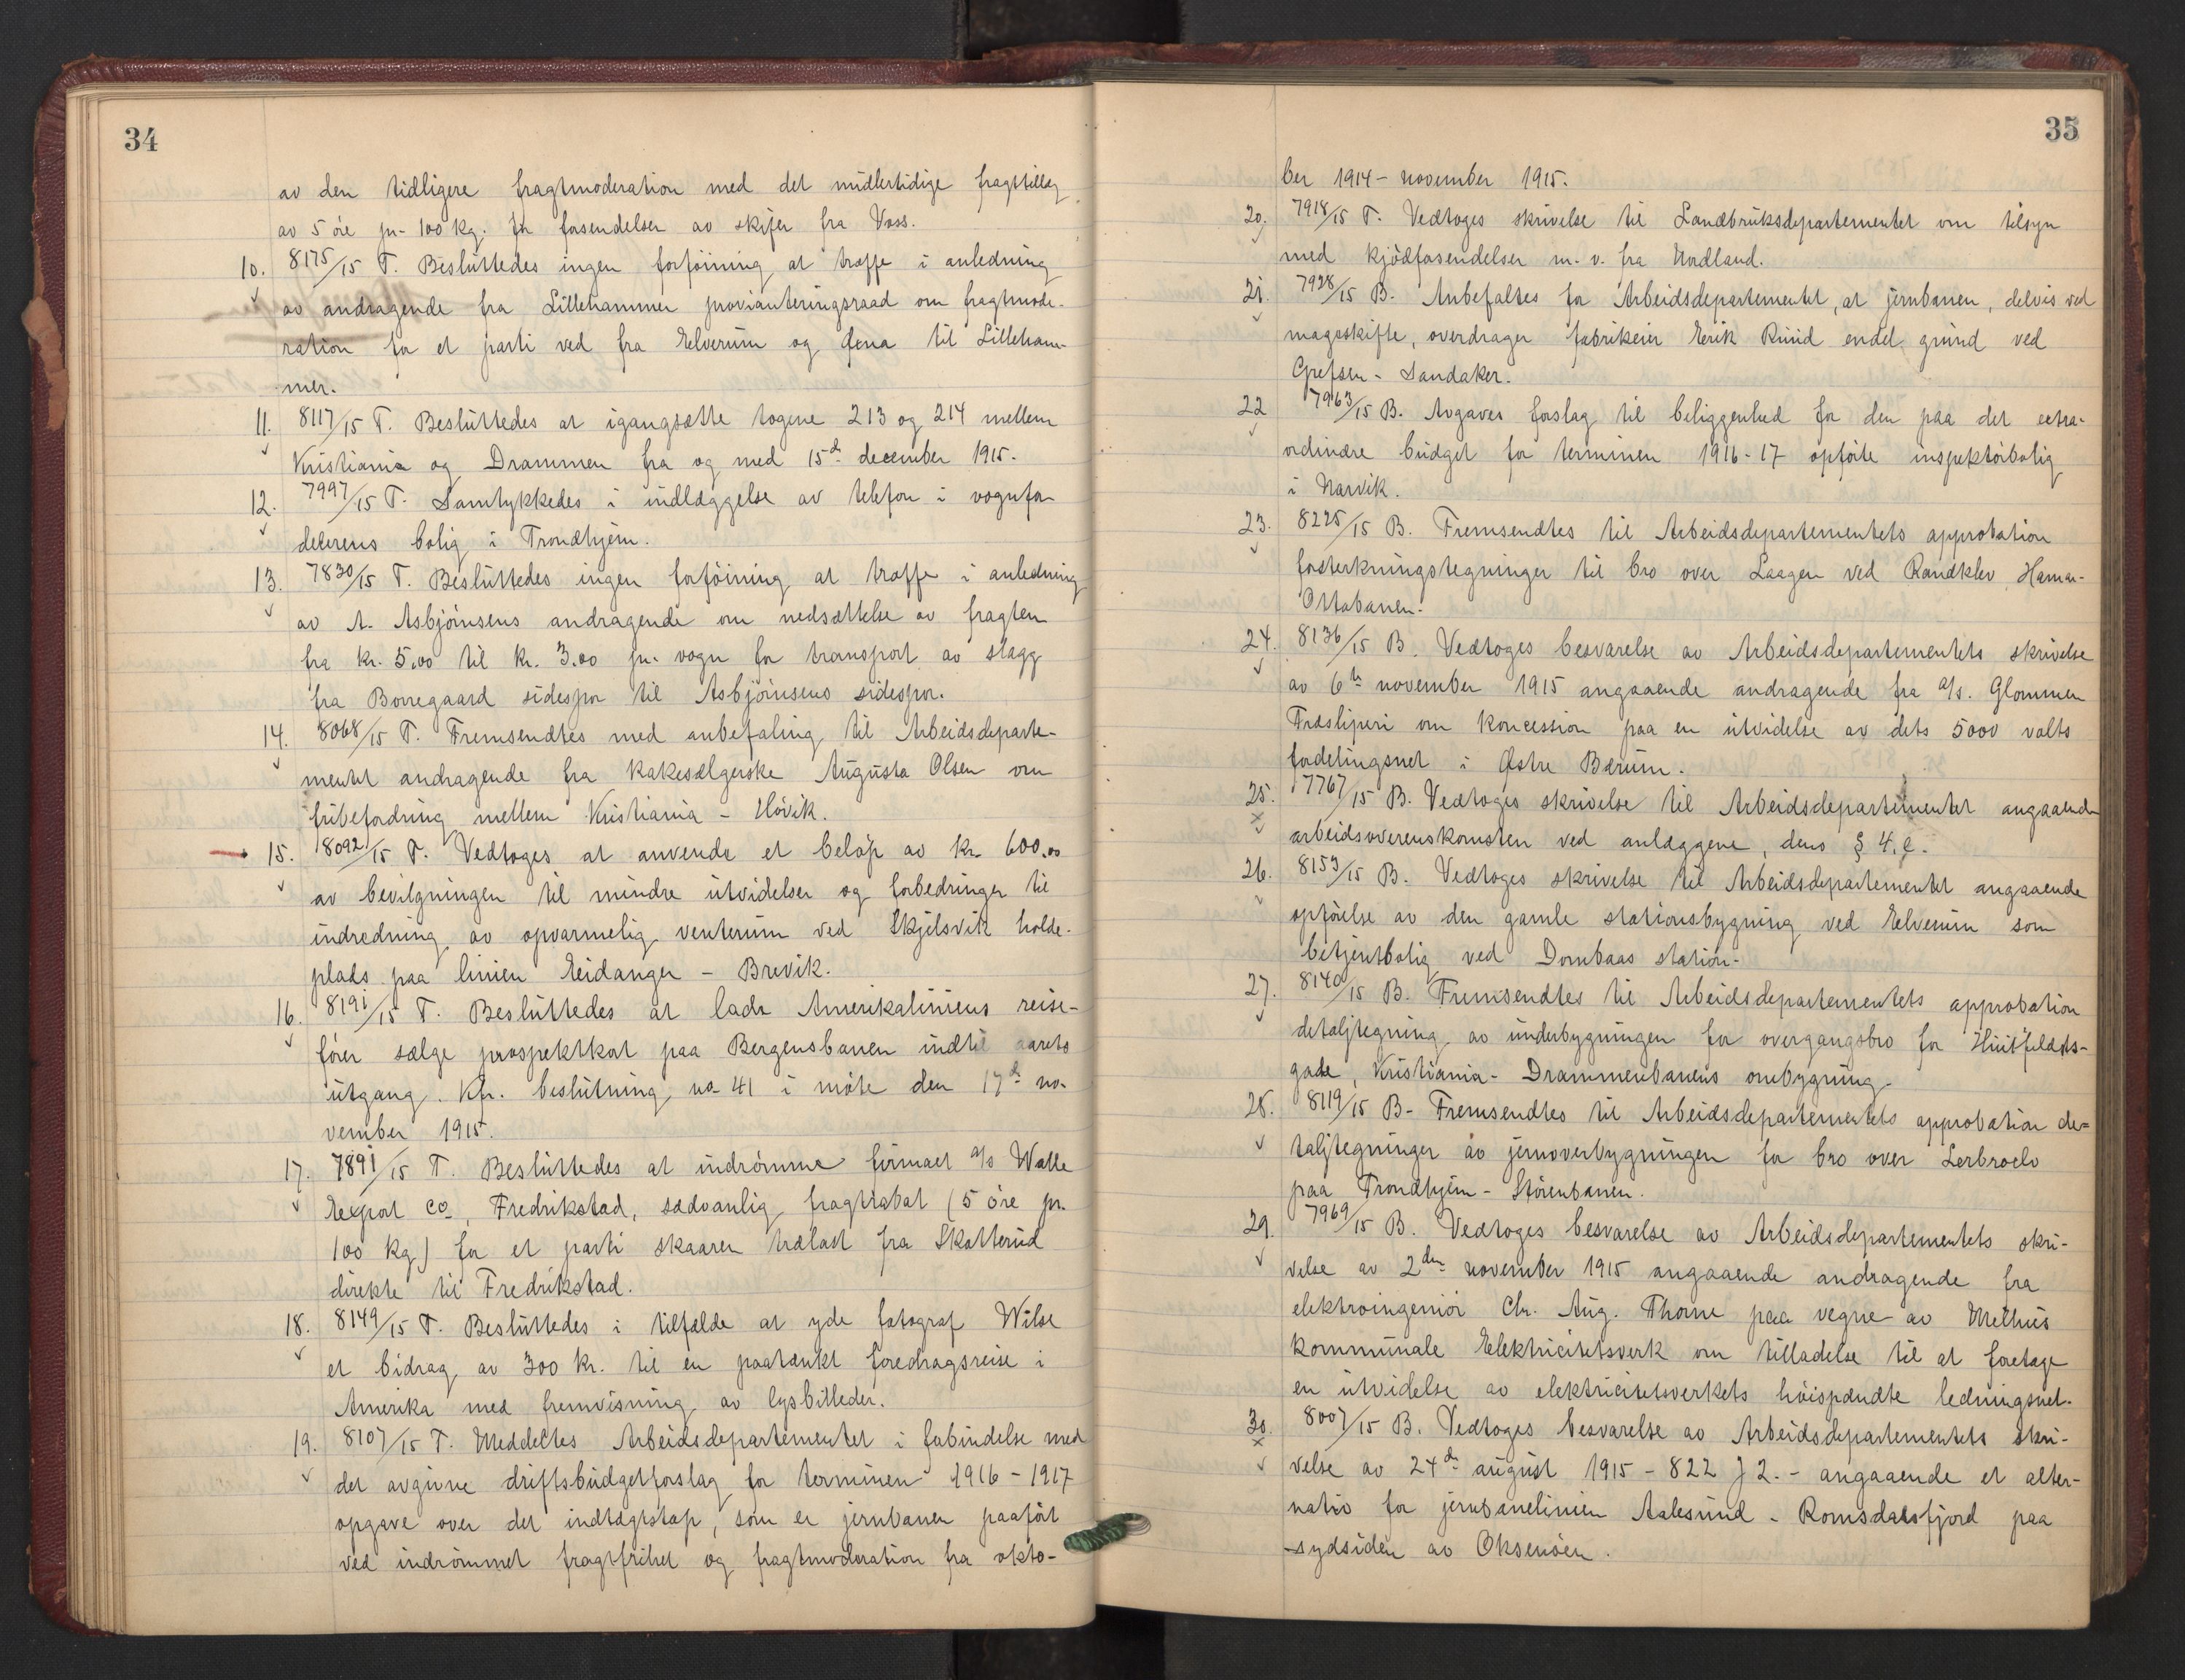 34
av den tidligere fragtmoderation med det midlertidige fragttillæg
av 5 öre pr. 100 kg. for forsendelser av skifer fra Voss.
10. 8175/15 T. Besluttedes ingen forföining at træffe i anledning
av andragende fra Lillehammer provianteringsraad om fragtmode-
ration for et parti ved fra Elverum og Rena til Lilleham-
mer.
11. 8117/15 T. Besluttedes at igangsætte togene 213 og 214 mellem
Kristiania og Drammen fra og med 15de december 1915.
12. 7997/15 T. Samtykkedes i indlæggelse av telefon i vognfor-
delerens bolig i Trondhjem.
13. 7830/15 T. Besluttedes ingen forföining at træffe i anledning
av A. Asbjörnsens andragende om nedsættelse av fragten
fra kr. 5,00 til kr. 3.00 pr. vogn for transport av slagg
fra Borregaard sidespor til Asbjörnsens sidespor.
14. 8068/15 T. Fremsendtes med anbefaling til Arbeidsdeparte-
mentet andragende fra kakesælgerske Augusta Olsen om
fribefordring mellem Kristiania - Hövik.
15. 8092/15 T. Vedtoges at anvende et belöp av kr. 600.00
av bevilgningen til mindre utvidelser og forbedringer til
indredning av opvarmelig venterum ved Skjelsvik holde-
plads paa linien Eidanger - Brevik.
16. 8191/15 T. Besluttedes at lade Amerikaliniens reise-
förer sælge prospektkort paa Bergensbanen indtil aarets
utgang. Kfr. beslutning no 41 i möte den 17de no-
vember 1915.
17. 7891/15 T. Besluttedes at indrömme firmaet a/s Walle
Export Co, Fredrikstad, sædvanlig fragtrabat (5 öre pr.
100 kg) for et parti skaaren trælast fra Skotterud
direkte til Fredrikstad.
18. 8149/15 T. Besluttedes i tilfælde at yde fotograf Wilse
et bidrag av 300 kr. til en paatænkt foredragsreise i
Amerika med fremvisning av lysbilleder.
19. 8107/15 T. Meddeltes Arbeidsdepartementet i forbindelse med
det avgivne driftsbudgetforslag for terminen 1916 - 1917
opgave over det indtægtstap, som er jernbanen paafört
ved indrömmet fragtfrihet og fragtmoderation fra okto-
35
ber 1914 - november 1915.
20. 7918/15 T. Vedtoges skrivelse til Landbruksdepartementet om tilsyn
med kjödforsendelser m. v. fra Nordland.
21. 7928/15 B. Anbefaltes for Arbeidsdepartementet, at jernbanen, delvis ved
mageskifte, overdrager fabrikeier Erik Ruud endel grund ved
Grefsen - Sandaker.
22 7963/15 B. Avgaves forslag til beliggenhed for den paa det extra-
ordinære budget for terminen 1916-17 opförte inspektörbolig
i Narvik.
23. 8225/15 B. Fremsendtes til Arbeidsdepartementets approbation
forsterkningstegninger til bro over Laagen ved Randklev, Hamar-
Ottabanen.
24. 8136/15 B. Vedtoges besvarelse av Arbeidsdepartementets skrivelse
av 6te november 1915 angaaende andragende fra a/s. Glommen
Træsliperi om koncession paa en utvidelse av dets 5000 volts
fordelingsnet i Østre Bærum.
25. 7767/15 B. Vedtoges skrivelse til Arbeidsdepartementet angaaende
arbeidsoverenskomsten ved anlæggene, dens § 4.e.
26. 8153/15 B. Vedtoges skrivelse til Arbeidsdepartementet angaaende
opförelse av den gamle stationsbygning ved Elverum som
betjentbolig ved Dombaas station.
27. 8140/15 B. Fremsendtes til Arbeidsdepartementets approbation
detaljtegning av underbygningen for overgangsbro for Huitfeldts-
gade, Kristiania - Drammenbanens ombygning.
28. 8119/15 B. Fremsendtes til Arbeidsdepartementets approbation de=
taljtegninger av jernoverbygningen for bro over Lerbroelv
paa Trondhjem - Störenbanen.
29. 7969/15 B. Vedtoges besvarelse av Arbeidsdepartementets skri-
velse av 2den november 1915 angaaende andragende fra
elektroingeniör Chr. Aug. Thorne paa vegne av Melhus
kommunale Elektricitetsverk om tilladelse til at foretage
en utvidelse av elektricitetsverkets höispændte ledningsnet.
30. 8007/15 B. Vedtoges besvarelse av Arbeidsdepartementets skri-
velse av 24de august 1915 - 822 J 2. - angaaende et alter-
nativ for jernbanelinien Aalesund - Romsdalsfjord paa
sydsiden av Oksenöen.